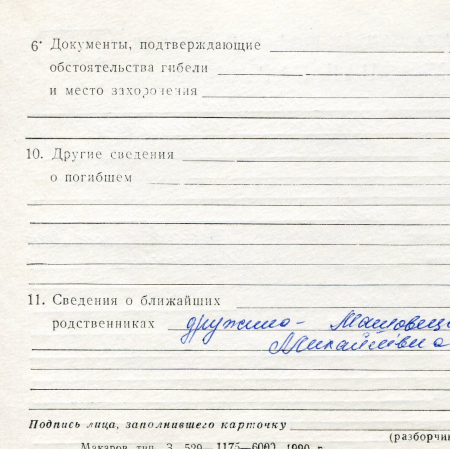 6· Документы, подтверждающие
обстоятельства гибели
и место захоронения
10. Другие сведения
о погибшем
11. Сведения о ближайших
родственниках дружина -
Подпись лица, заполнившего карточку
(разборчи
Макаров, тип. З. 529—1175—6000 1990 г.